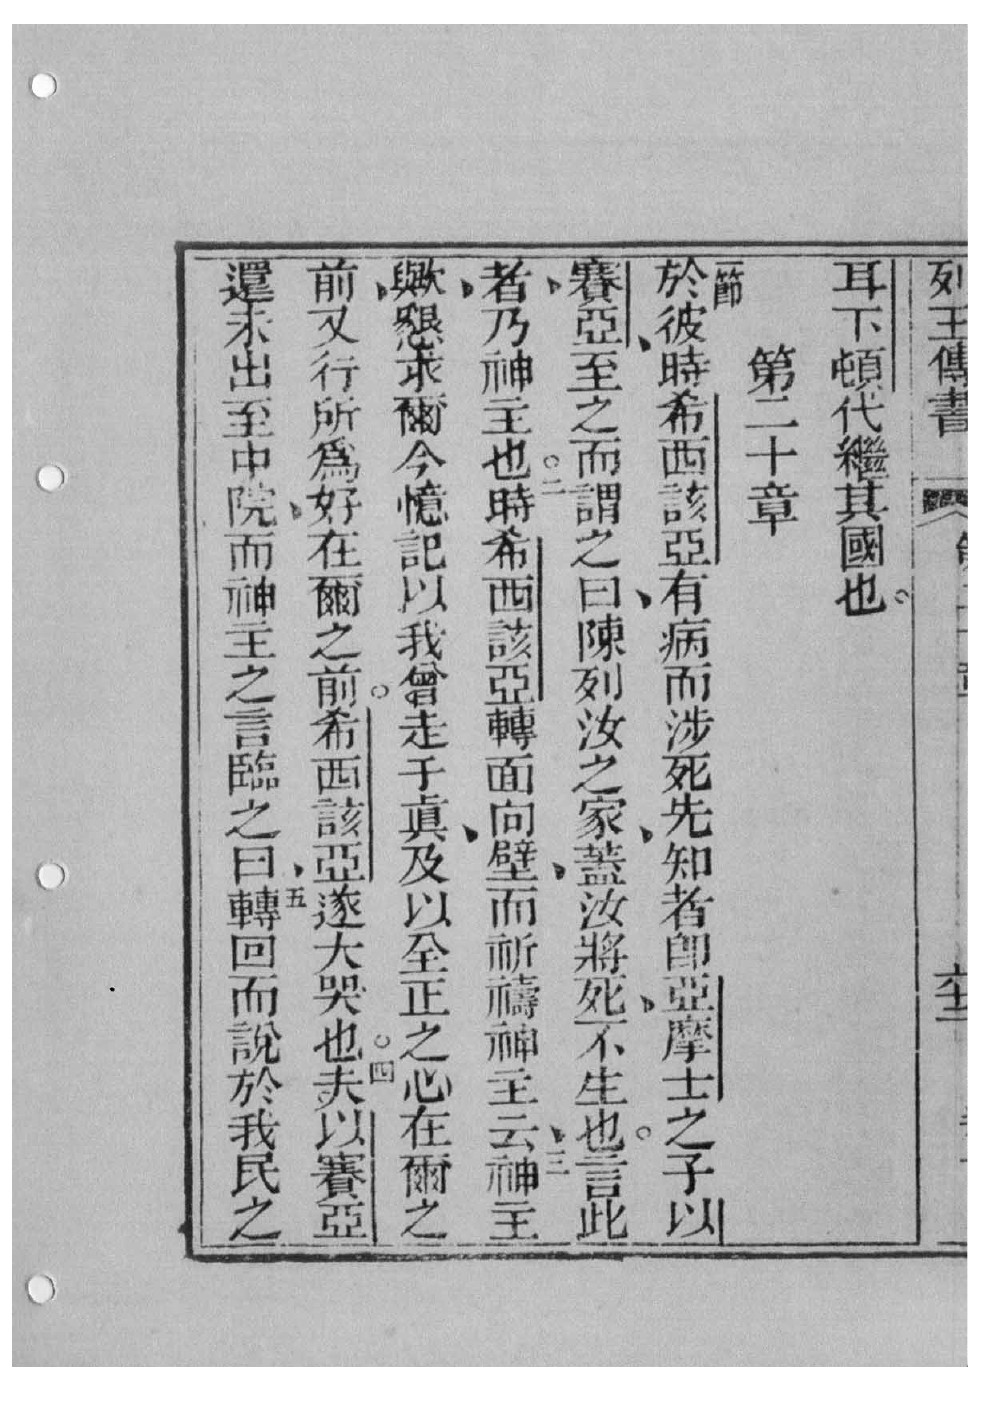 列王傳書
耳下頓代繼其國也。
第二十章
一節
於彼時希西該亞有病而涉死先知者卽亞摩士之子以
賽亞至之而謂之曰陳列汝之家蓋汝將死不生也。言此
者乃神主也。二時希西該亞轉面向壁而祈禱神主云三神主
歟懇求爾今憶記以我曾走于眞及以全正之心在爾之
前又行所爲好在爾之前。希西該亞遂大哭也。四夫以賽亞
還未出至中院而神主之言臨之曰五轉回而說於我民之